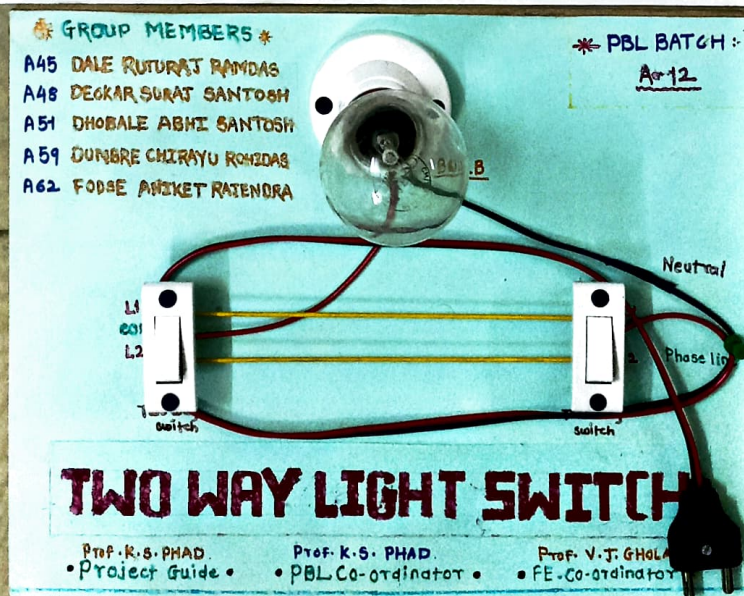 GROUP MEMBERS
A45 DALE RUTURAJ RAMDAS
A48 DEOKAR SURAJ SANTOSH
A51 DHOBALE ABHI SANTOSH
A59 DUNBRE CHIRAYU ROHIDAS
A62 FODSE ANIKET RAJENDRA
PBL BATCH :-
A-12
Neutral
L1
L2
Phase
switch
switch
TWO WAY LIGHT SWITCH
Prof. K. S. PHAD.
• Project Guide •
Prof. K. S. PHAD.
• PBL Co-ordinator •
Prof. V. J.
• FE. Co-ordinator